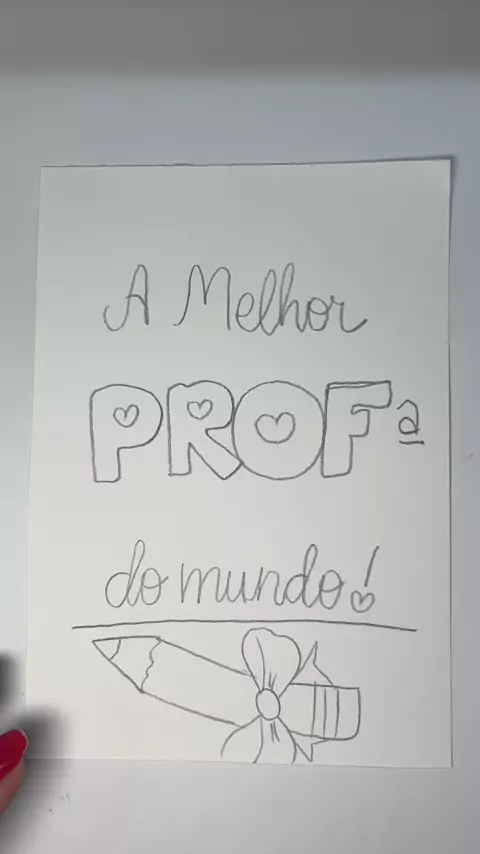 A Melhor
PROFª
do mundo!